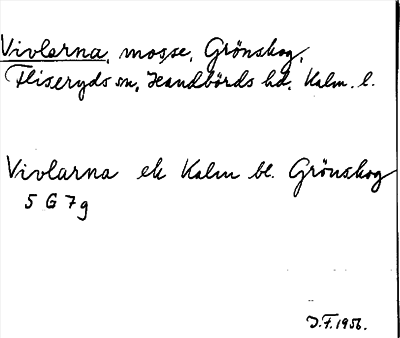 Vivlarna, mosse, Grönskog,
Fliseryds sn, Handbörds hd, Kalm. l.
Vivlarna ek Kalm bl. Grönskog
5 G 7g
J.F. 1956.